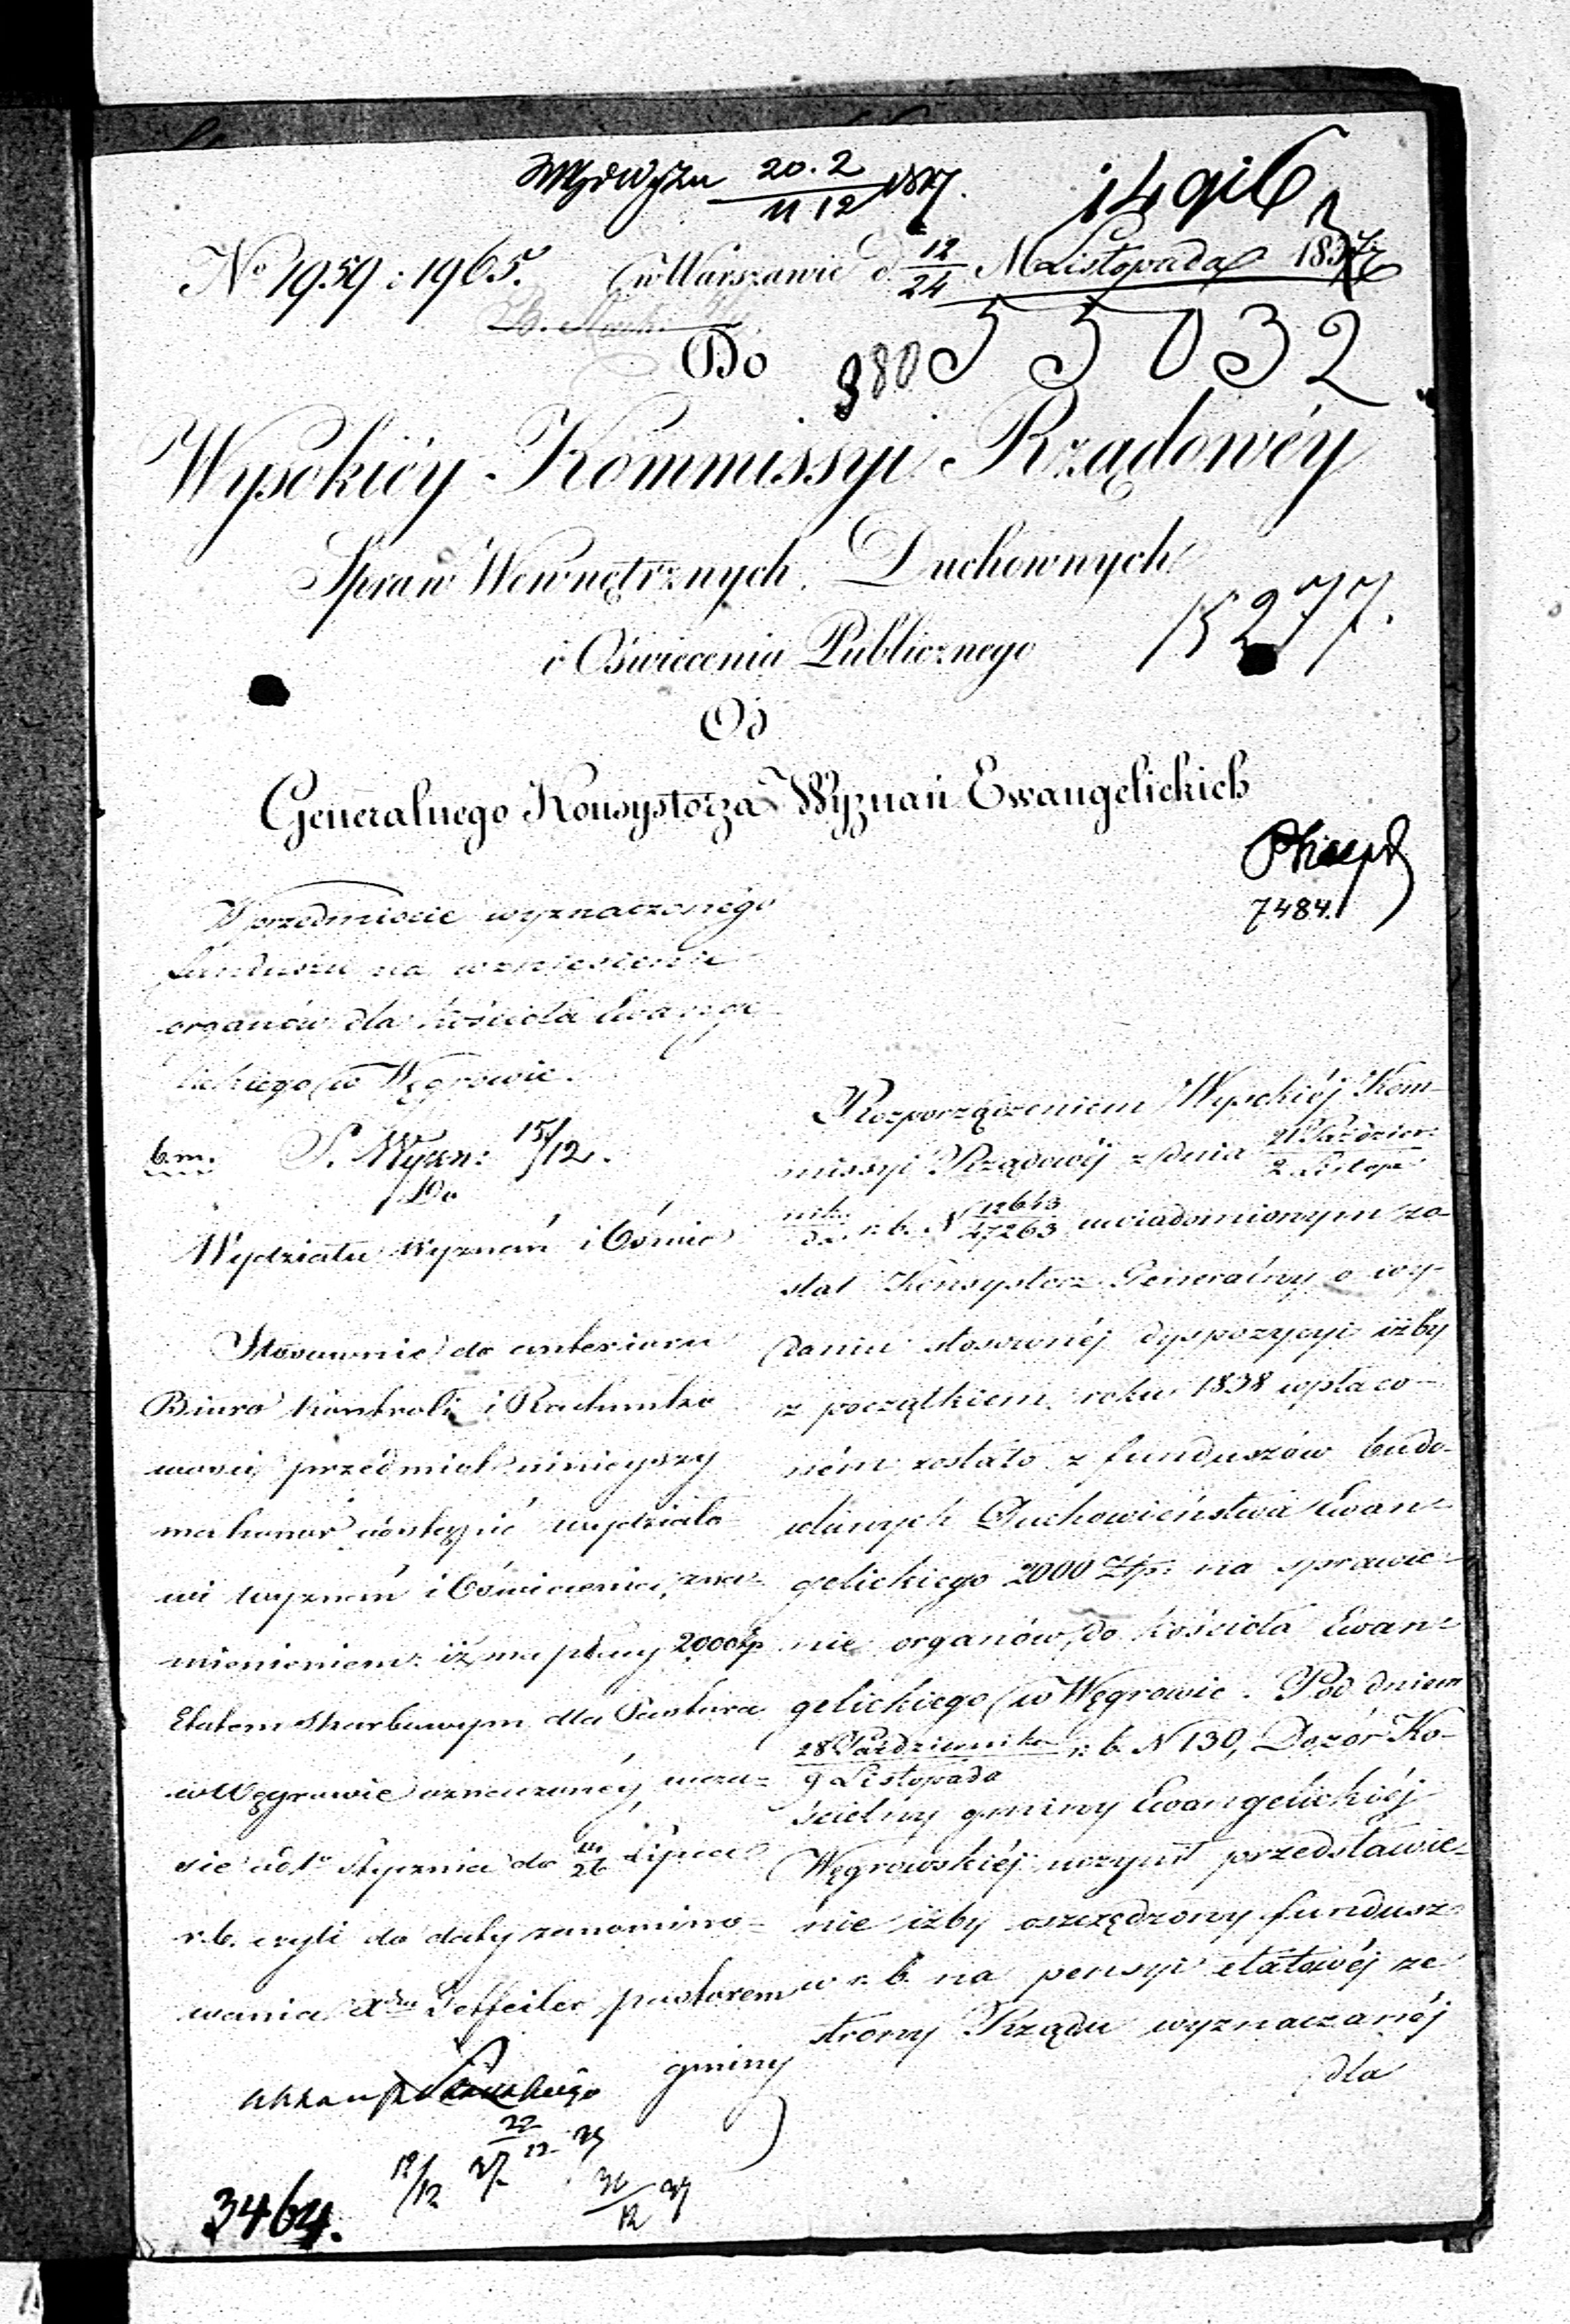 20.2
11 12 1837.
14 gi6
No 1959:1965. w Warszawie d 12/24 M Listopada 1837
Do 980 55032
Wysokiéy Kommissyi Rządowéy
Spraw Wewnętrznych, Duchownych
i Oświecenia Publicznego 15277.
Od
Generalnego Konsystorza Wyznań Ewangelickich
7484.
W przedmiocie wyznaczonego
funduszu na wzniesienie
organów dla kościoła Ewange
lickiego w Węgrowie.
b.m. S. Wyzn: 15/12.
Do
Wydziału Wyznań i Oświec
Stosownie do anterioru
Biuro Kontroli i Rachunko
wości przedmiot ninieyszy
ma honor ustąpić wydziało
wi wyznań i Oświecenia, zna-
mienieniem: iż ma płacy 2000 Zp
Etatem Skarbowym dla Pastora
w Węgrowie oznaczonéy,
sie od 1o Stycznia do 14/26 Lipca
r.b. czyli do daty zanomino-
wania Xdza pastorem
gminy
Rozporządzeniem Wysokiéj Kom-
missyi Rządowéj z dnia 21 Paździer:
2 Listopa
nika
da r.b. N 12643/47263 uwiadomionym zo-
stał Konsystorz Generalny o wy-
daniu stosownéj dyspozycyi iżby
z początkiem roku 1838 wpłaco-
ném zostało z funduszów budo-
wlanych Duchowieństwa Ewan-
gelickiego 2000 Złp. na sprawie-
nie organów do kościoła Ewan-
gelickiego w Węgrowie. Pod dniem
28 Października
9 Listopada r.b. N 130, Dozór Ko-
ścielny gminy Ewangelickiéj
Węgrowskiéj uczynił przedstawie-
nie iżby oszczędzony fundusz
w r.b. na pensyi etatowéj ze
strony Rządu wyznaczanéj
dla
19/12
3464.